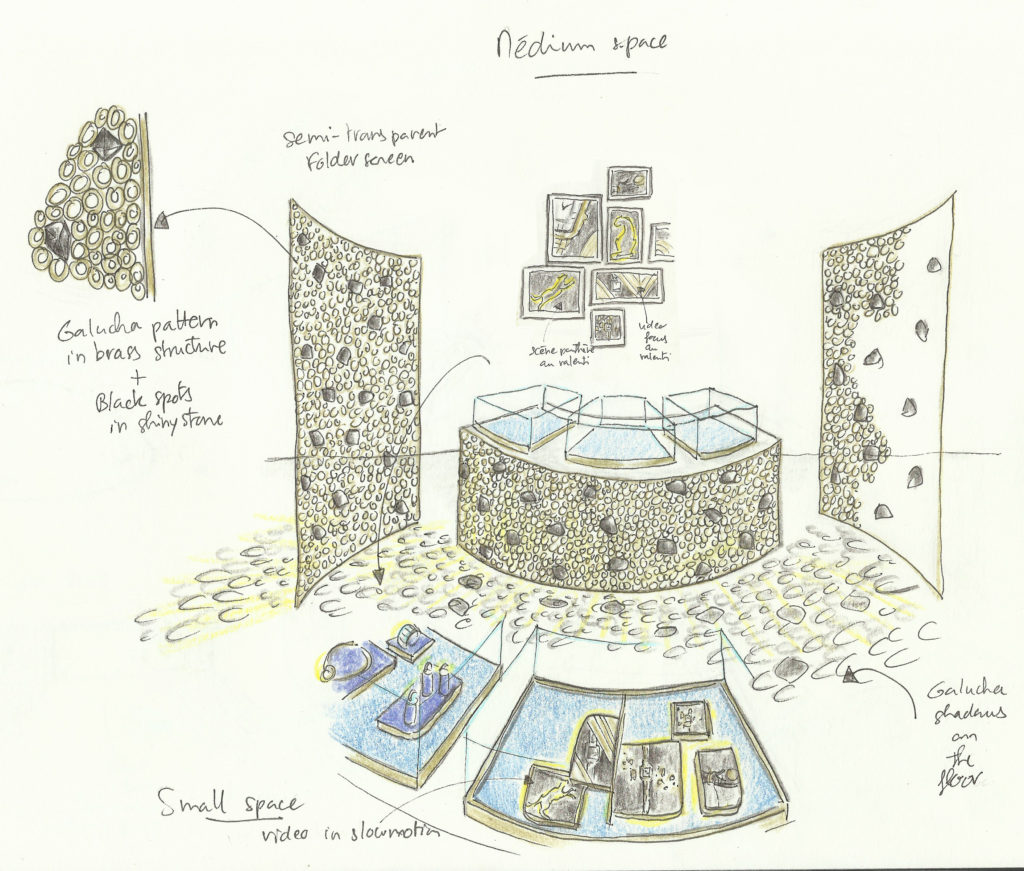 Médium space
semi-transparent
Folder screen
Galucha pattern
in brass structure
+
Black spots
in shiny stone
scène panthère
au ralenti
video
focus
au
ralenti
Galucha
shadows
on
the
floor
Small space
video in slowmotion